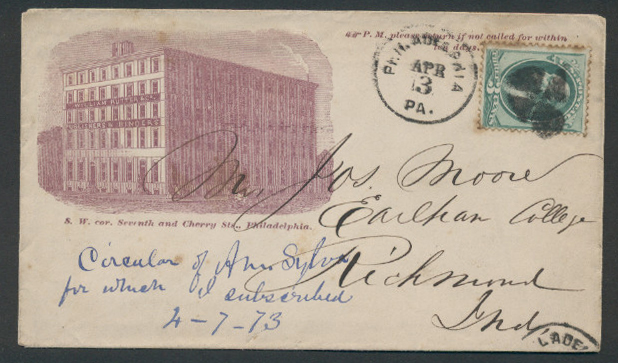 P. M. please return if not called for within
ten days.
PHILADELPHIA
APR
3
PA.
PUBLISHERS BINDERS
S. W. cor. Seventh and Cherry Sts., Philadelphia.
Jos. Moore
Earlham College
Richmond
Ind
Circular of Am Sylva
for which I subscribed
4-7-73
LADE